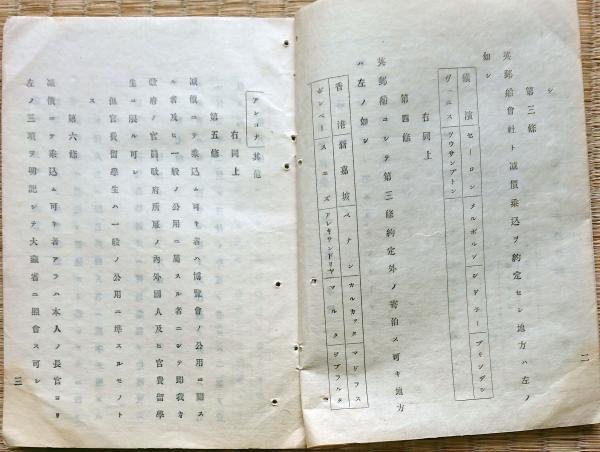 シ
第三條
英郵船會社ト減價乘込ヲ約定セシ地方ハ左ノ
如シ
横濱 セーロン メルボルン シドニー ブリンデシ
ヴェニス ソウサンプトン
右同上
第四條
英郵船ニシテ第三條約定外ノ寄泊ス可キ地方
ハ左ノ如シ
香港 新嘉坡 ペナン カルカッタ マドラス
ボンベー スエズ アレキサンドリヤ マルタ ジブラルタ
二
アンコナ 其他
右同上
第五條
減價ニテ乘込ム可キ者ハ博覽會ノ公用ニ關ス
ル者及ヒ一般ノ公用ニ屬スル者ニシテ即我カ
政府ノ官員政府所雇ノ內外國人及ヒ官費留學
生ニ限ル可シ
但官費留學生ハ一般ノ公用ニ準スルモノト
ス
第六條
減價ニテ乘込ム可キ者アラハ本人ノ長官ヨリ
左ノ三項ヲ明記シテ大藏省ニ照會ス可シ
三